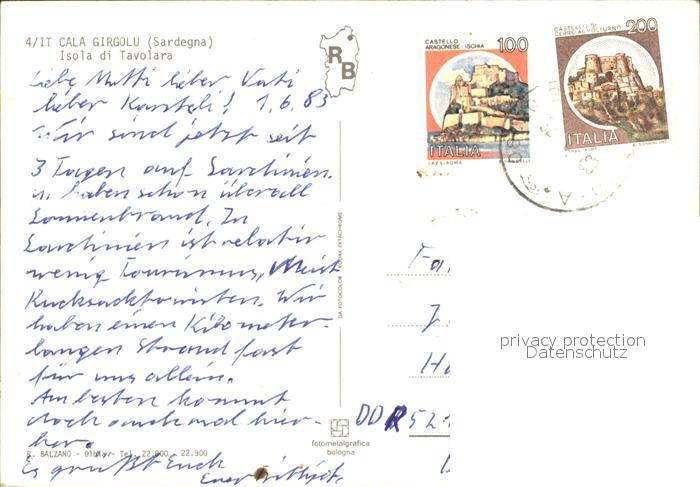 4/IT CALA GIRGOLU (Sardegna)
Isola di Tavolara
RB
CASTELLO
ARAGONESE - ISCHIA
100
ITALIA
I.P.Z.S. - ROMA
CASTELLO DI
CERRO AL VOLTURNO
200
ITALIA
I.P.Z.S. - ROMA
Liebe Mutti lieber Vati
lieber 1.6.83
Wir sind jetzt seit
3 Tagen auf Sardinien.
u. haben schon überall
Sonnenbrand. In
Sardinien ist relativ
wenig Tourismus, Meist
Rucksacktouristen. Wir
haben einen Kilometer-
langen Strand fast
für uns allein.
Am besten kommt
doch auch mal hier-
her.
Es grüßt Euch
Euer
R. BALZANO - Olbia - Tel. 22.800 22.900
DA FOTOCOLOR KODAK EKTACHROME
fotometalgrafica
bologna
DDR 52
privacy protection
Datenschutz